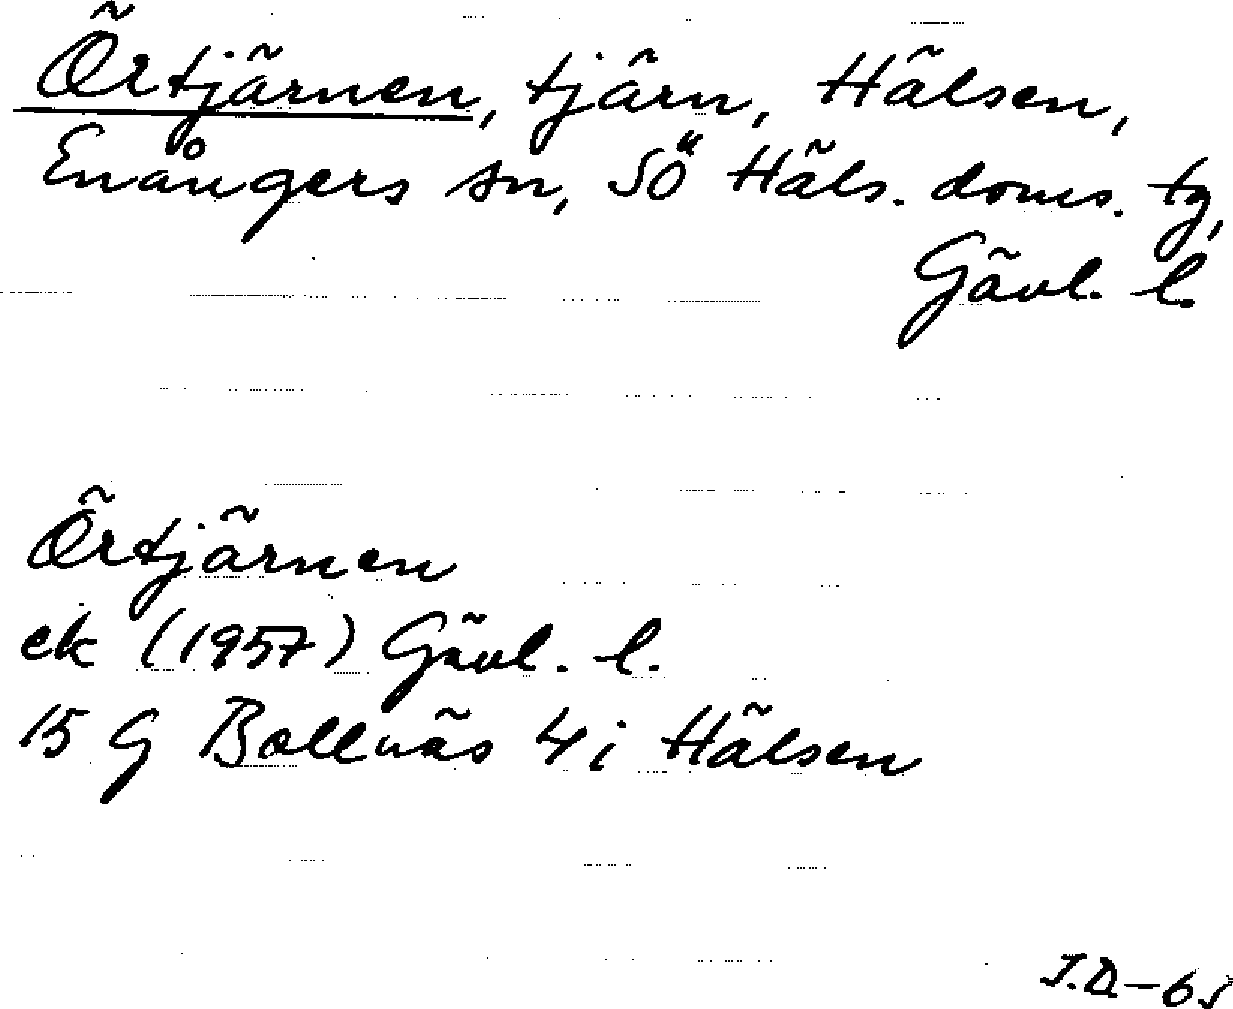 Örtjärnen, tjärn, Hälsen,
Enångers sn, SÖ Häls. doms. tg,
Gävl. l.
Örtjärnen
ek (1957) Gävl. l.
15 G Bollnäs 4 i Hälsen
J.D.-65